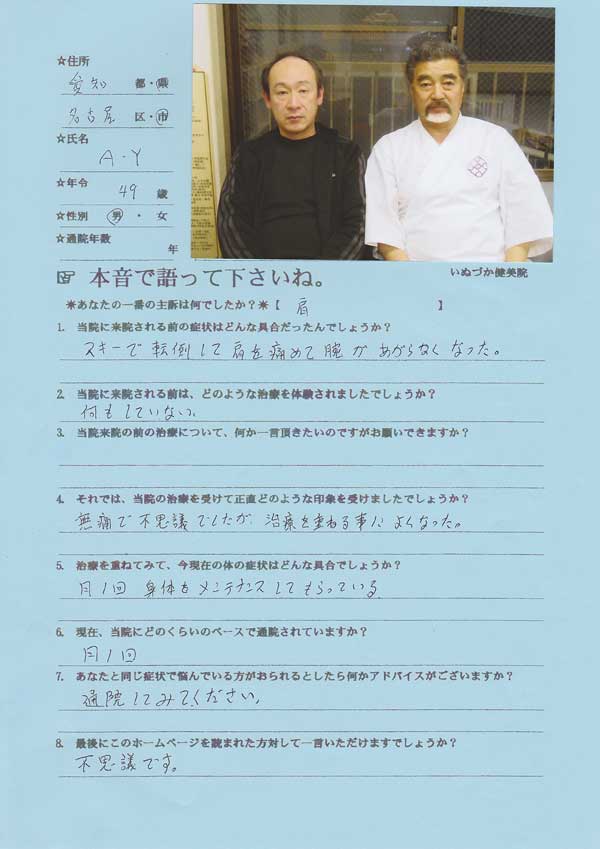 ☆住所
愛知 都・県
名古屋 区・市
☆氏名
A・Y
☆年令
49 歳
☆性別 男・女
☆通院年数
年
☞ 本音で語って下さいね。
いぬづか健美院
＊あなたの一番の主訴は何でしたか？＊【 肩 】
1. 当院に来院される前の症状はどんな具合だったんでしょうか？
スキーで転倒して肩を痛めて腕があがらなくなった。
2. 当院に来院される前は、どのような治療を体験されましたでしょうか？
何もしていない。
3. 当院来院の前の治療について、何か一言頂きたいのですがお願いできますか？
4. それでは、当院の治療を受けて正直どのような印象を受けましたでしょうか？
無痛で不思議でしたが、治療を重ねる事によくなった。
5. 治療を重ねてみて、今現在の体の症状はどんな具合でしょうか？
月1回 身体をメンテナンスしてもらっている
6. 現在、当院にどのくらいのペースで通院されていますか？
月1回
7. あなたと同じ症状で悩んでいる方がおられるとしたら何かアドバイスがございますか？
通院してみてください。
8. 最後にこのホームページを読まれた方対して一言いただけますでしょうか？
不思議です。